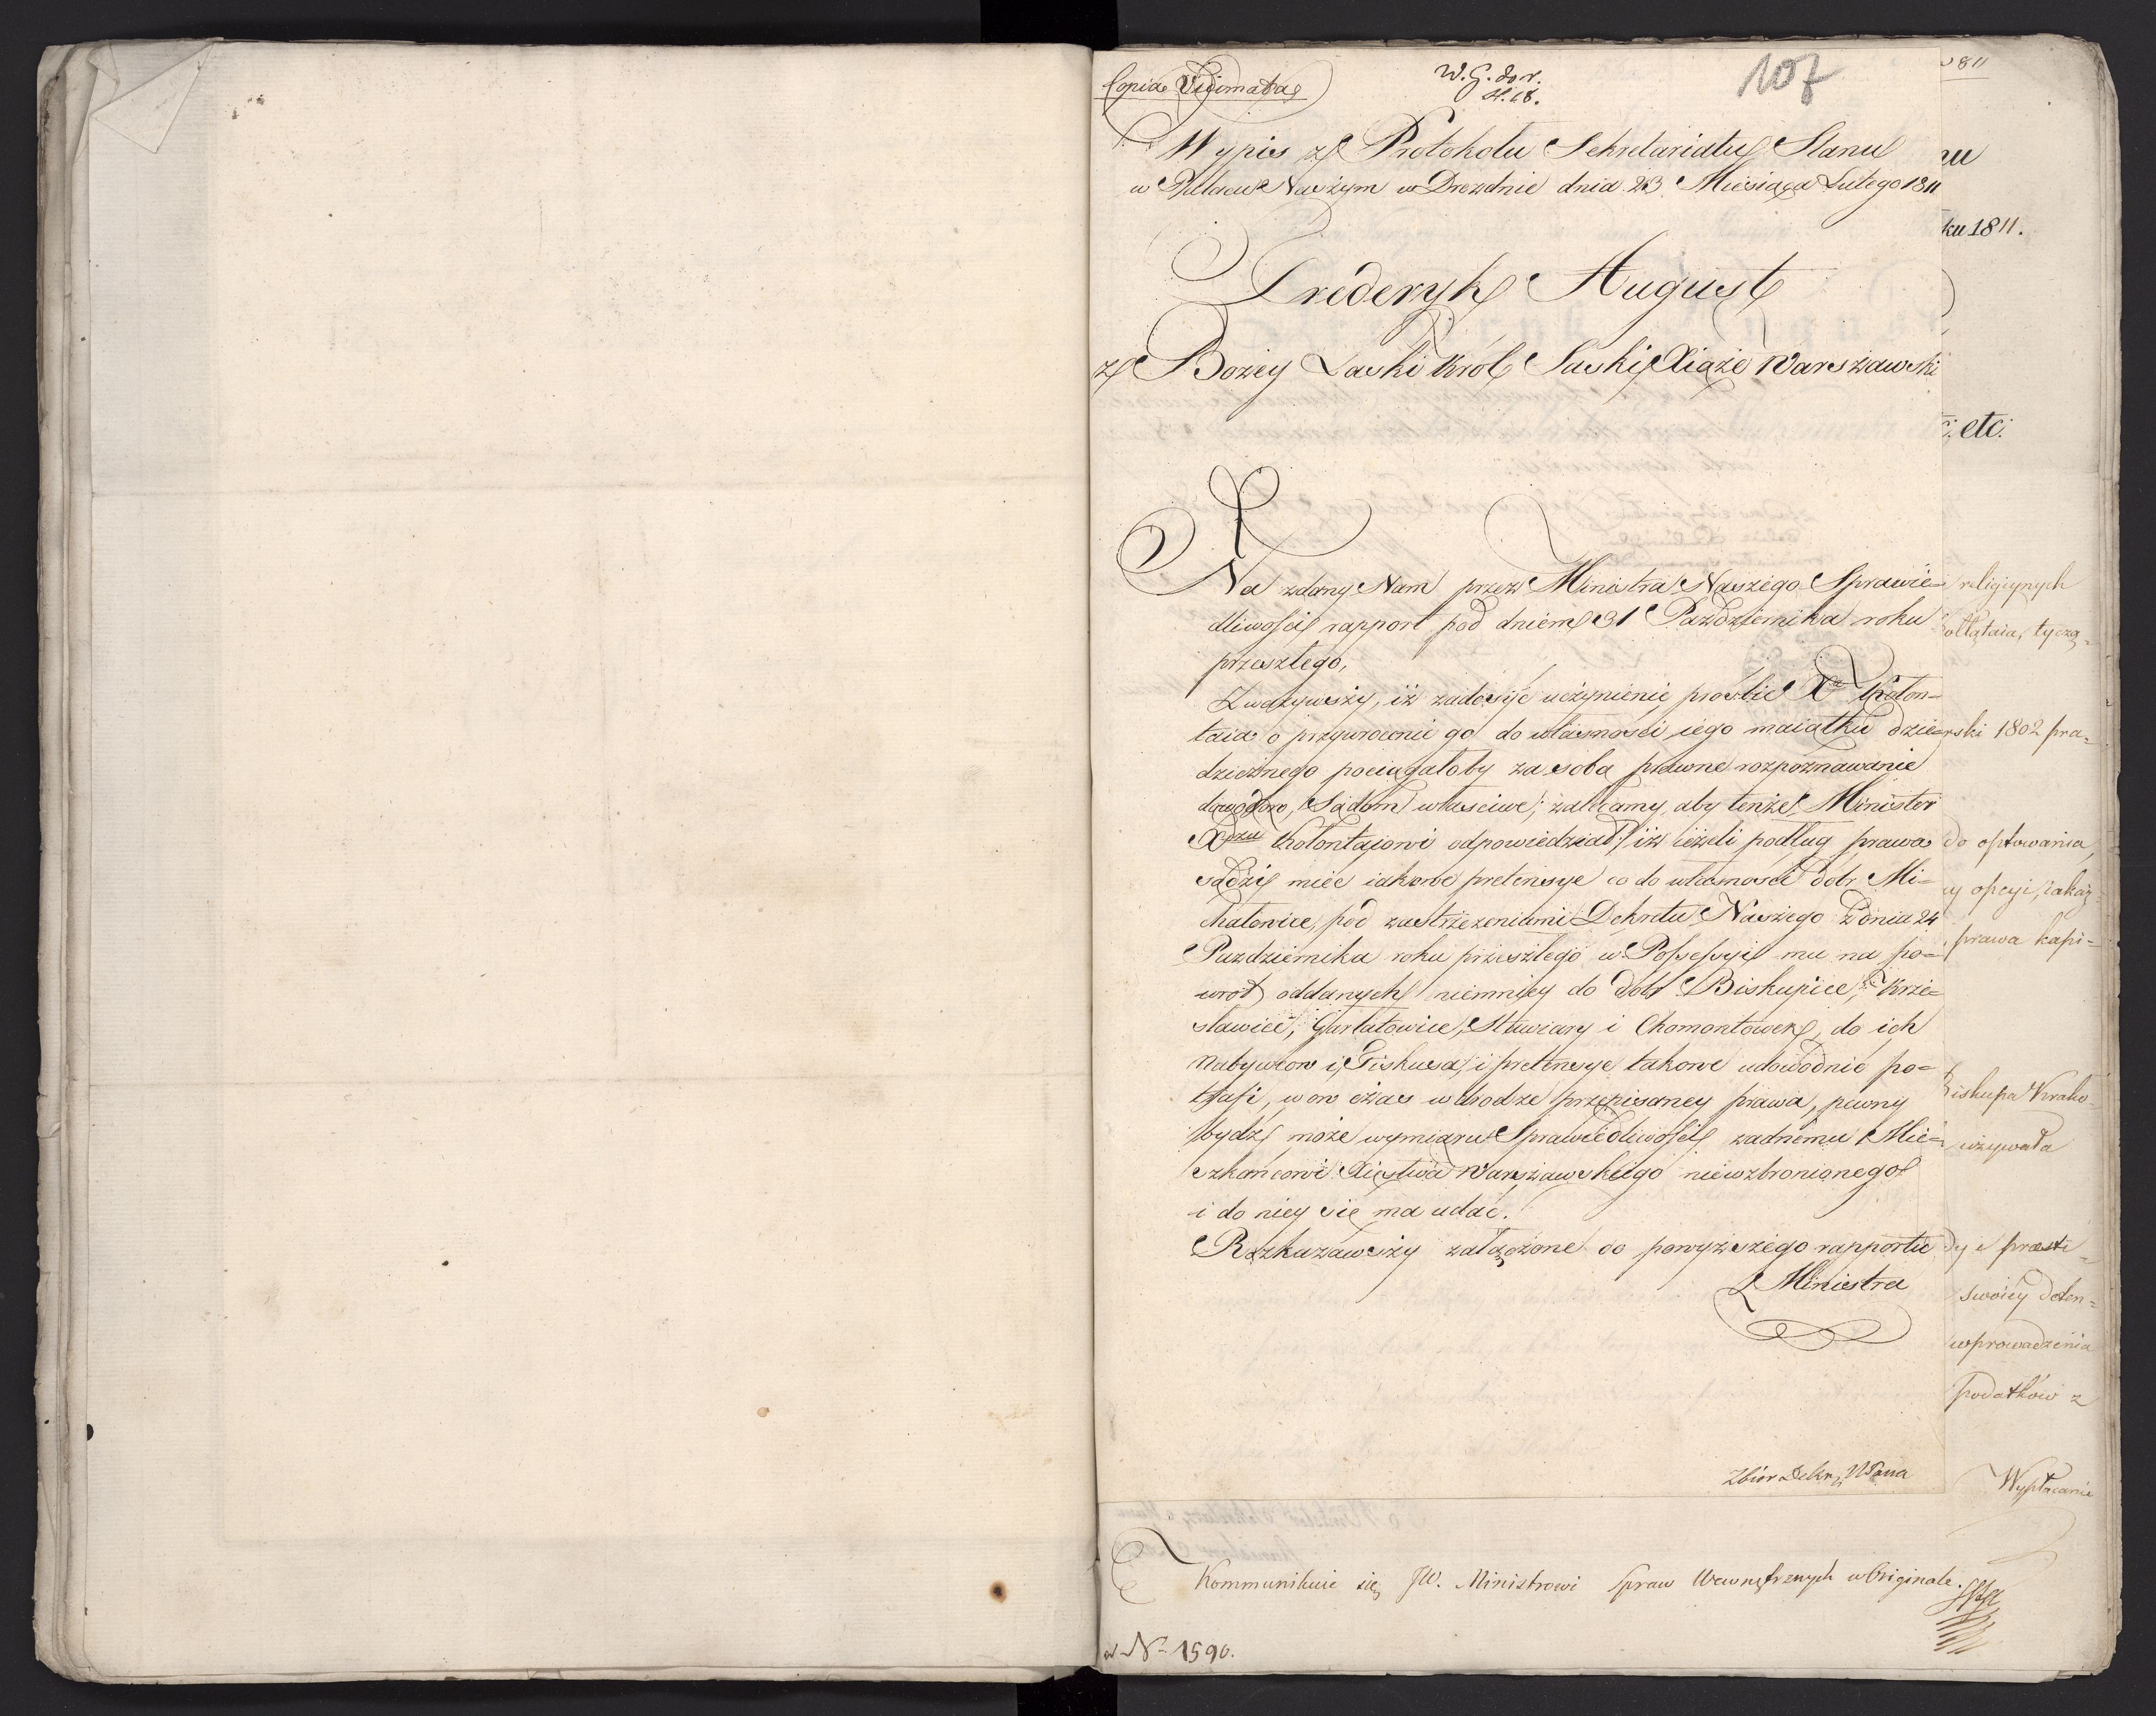 Copia Vidimata
W. G. do r.
107
Wypis z Protokołu Sekretariatu Stanu
w Pałacu Naszym w Dreźdnie dnia 23 Miesiąca Lutego 1811
Frederyk August
z Bożey Łaski Krol Saski Xiąże Warszawski
Na zdany Nam przez Ministra Naszego Sprawie-
dliwości rapport pod dniem 31 Października roku
przeszłego,
Zważywszy, iż zadosyć uczynienie prośbie Xa Kołon-
taia o przywrocenie go do własności iego maiątku dzie-
dzicznego pociągałoby za sobą prawne rozpoznawanie
dowodow, Sądom właściwe; zalecamy, aby tenże Minister
Xdzu Kołontajowi odpowiedział, iż ieżeli podług prawa
sądzi mieć iakowe pretensye co do własności dobr Mi-
chałowice, pod zastrzeżeniami Dekretu Naszego z dnia 24
Października roku przeszłego w Possessyi mu na po-
wrot oddanych niemniey do dobr Biskupice, Krze-
sławice, Gartatowice, Stawiary i Chomontowek, do ich
nabywcow i Fiskusa, i pretensye takowe udowodnić po-
trafi, w ow czas w drodze przepisaney prawa, pewny
bydź może wymiaru Sprawiedliwości żadnemu Mie-
szkańcowi Xięstwa Warszawskiego niewzbronionego
i do niey się ma udać.
Rozkazawszy załączone do powyższego rapportu
Ministra
Zbior Dekr. NPana
Kommunikuie się JW. Ministrowi Spraw Wewnętrznych w Originale.
ad N. 1590.
811
nu
ku 1811.
etc.
religiynych
ołłątaia, tyczą-
rski 1802 pra-
do optowania,
opcyi, iakąż
prawa kapi-
Biskupa Krako-
używała
swoiey doten-
wprowadzenia
podatków z
Wypłacanie